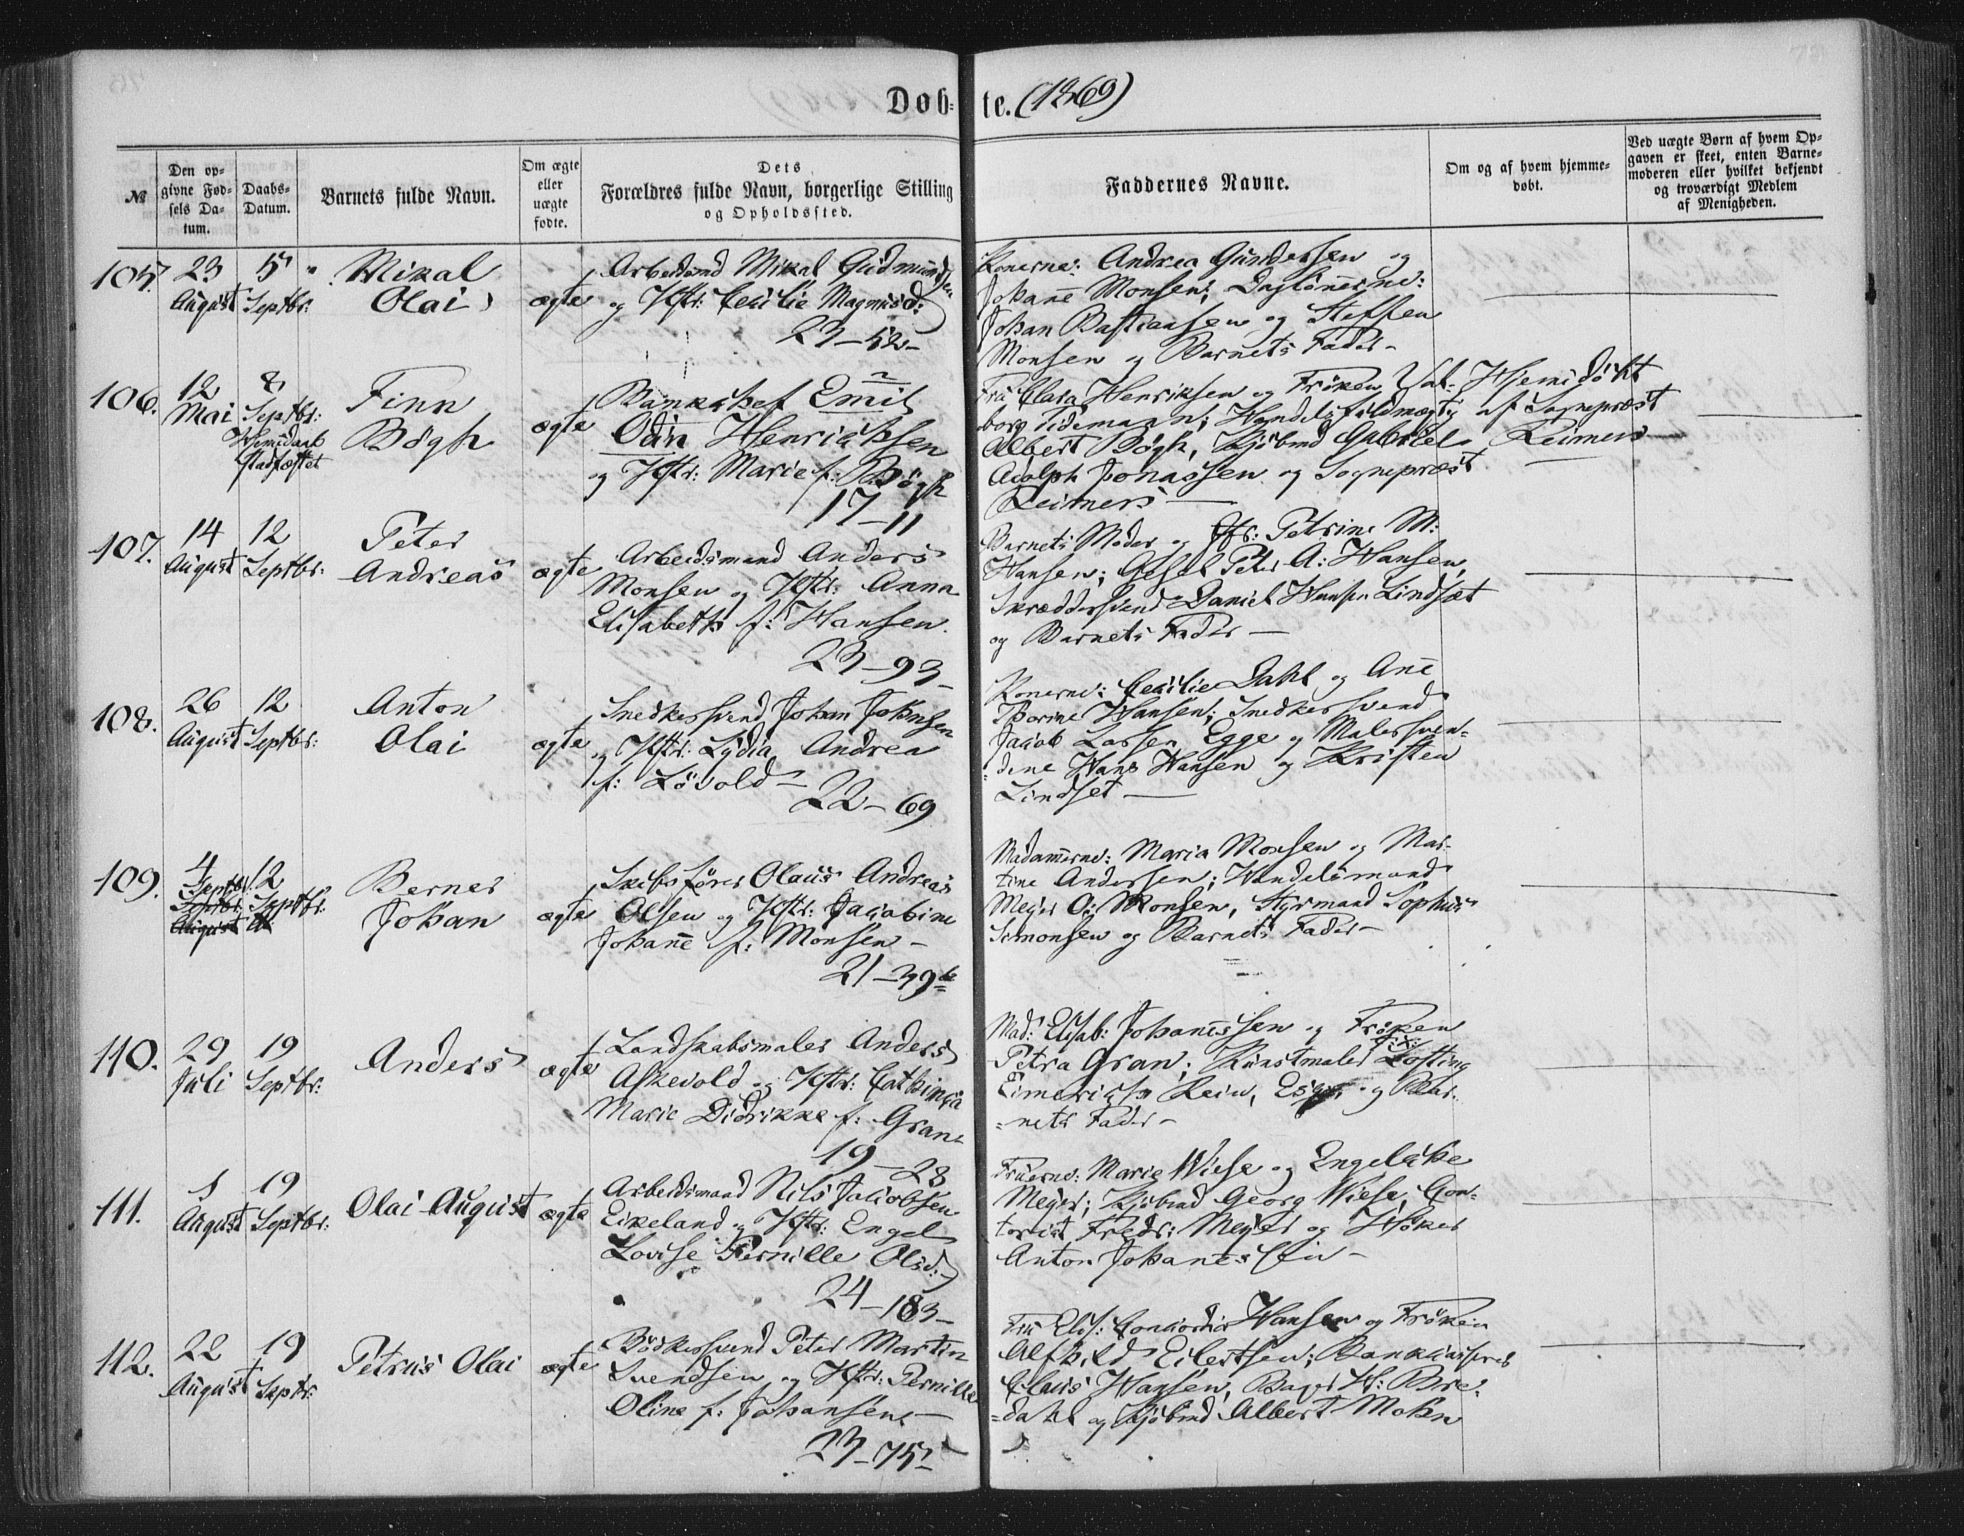 Døb- te. (1869)
№
Den op-
givne Fød-
sels Da-
tum.
Daabs-
Datum.
Barnets fulde Navn.
Om ægte
eller
uægte
fødte.
Dets
Forældres fulde Navn, borgerlige Stilling
og Opholdssted.
Faddernes Navne.
Om og af hvem hjemme-
døbt.
Ved uægte Børn af hvem Op-
gaven er skeet, enten Barne-
moderen eller hvilket bekjendt
og troværdigt Medlem
af Menigheden.
105.
23
August
5
Septbr:
Mikal
Olai
ægte
Arbeidsmd Mikal Gudmundsen
og Hstr: Cecilie Magnusd:
23-52-
Konerne: Andrea Gundersen og
Johane Monsen; Daglønerne:
Johan Bastiansen og Steffen
Monsen og Barnets Fader-
106.
12
Mai
8
Septbr:
Hjemdaab
stadfæstet
Finn
Bøgh
ægte
Bankchef Emil
Odin Henrichsen
og Hstr: Marie f: Bøgh
17-11
Fru Clara Henriksen og Frøken Val-
borg Tidemann; Handelsfuldmægtig
Albert Bøgh, Kjøbmd Gabriel
Adolph Jonassen og Sognepræst
Reimers
Hjemedøbt
af Sognepræst
Reimers
107.
14
August
12
Septbr:
Peter
Andreas
ægte
Arbeidsmand Anders
Monsen og Hstr: Anna
Elisabeth f: Hansen.
23-93-
Barnets Moder og Jfr: Petrine M:
Hansen; Gesel Peter A: Hansen,
Skræddersvend Daniel Hansen Lindset
og Barnets Fader
108.
26
August
12
Septbr:
Anton
Olai
ægte
Snedkersvend Johan Johnsen
og Hstr: Lydia Andrea
f: Løvold-
22-69
Konerne: Cecilie Dahl og Ane
Thorine Hansen; Snedkersvend
Jacob Larsen Egge og Malersven-
dene Hans Hansen og Kristen
Lindset
109.
4
Septbr:
12
Septbr:
Berner
Johan
ægte
Skibsfører Olaus Andreas
Olsen og Hstr: Jacobine
Johane f: Monsen-
21-39b
Madamerne: Maria Monsen og Mar-
tine Andersen; Handelsmand
Meyer O: Monsen, Styrmand Sophus
Simonsen og Barnets Fader-
110.
29
Juli
19
Septbr:
Anders
ægte
Landskabsmaler Anders
Askevold og Hstr: Cathinca
Marie Didrikke f: Gran
19-28
Mad: Elisab: Johanessen og Frøken
Petra Gran; Kunstmaler
Eimerich Rein, og Bar-
nets Fader-
111.
1
August
19
Septbr:
Olai August
ægte
Arbeidsmand Nils Jacobsen
Eikeland og Hstr: Engel
Lovise Pernille Olsd:
24-183-
Fruerne: Marie Wiese og Engelche
Meyer; Kjøbmd Georg Wiese, Con-
torist Fredr: Meyer og Høker
Anton Johanessen-
112.
22
August
19
Septbr:
Petrus Olai
ægte
Bødkersvend Peter Martin
Svendsen og Hstr: Pernille
Oline f: Johansen-
23-75-
Fru Elis: Concordia Hansen og Frøken
Alfhild Eilertsen; Bankkasserer
Claus Hansen, Bager H: Bre-
dahl og Kjøbmd Albert Mohn